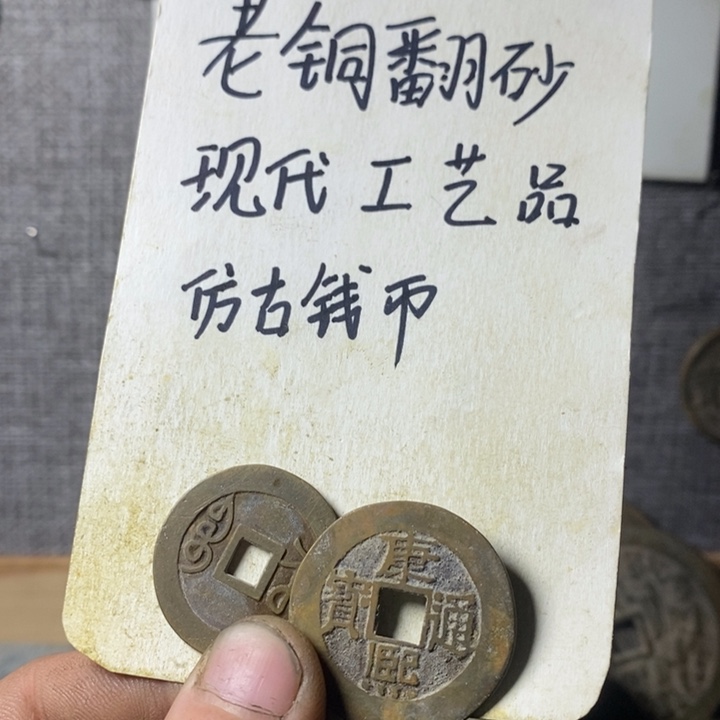 老铜翻砂
现代工艺品
仿古钱币
康熙通寳